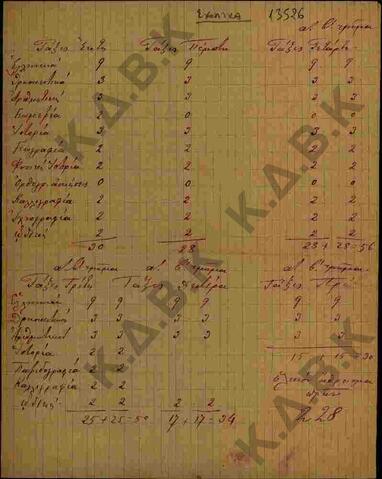 ΣΧΟΛΙΚΑ 13526
α' β' τμήμα
Τάξις Έκτη Τάξις Πέμπτη Τάξις Τετάρτη
Ελληνικά 9 9 9 9
Θρησκευτικά 3 3 3 3
Αριθμητική 3 3
Γεωμετρία 2 0 0 0
Ιστορία 3 3 3 3
Γεωγραφία 2 2 2 2
Φυσική Ιστορία 2 2 2 2
Ορθογρ. ασκήσεις 0 0 0 0
Καλλιγραφία 2 2 2 2
Ιχνογραφία 2 2 2 2
Ωδική 2 2 2 2
30 28 28 + 28 = 56
α' β' τμήμα α' β' τμήμα α' β' τμήμα
Τάξις Τρίτη Τάξις Δευτέρα Τάξις
Ελληνικά 9 9 9 9 9 9
Θρησκευτικά 3 3 3 3 3 3
Αριθμητική 3 3 3 3 3 3
Ιστορία 2 2 15 + 15 = 30
2 2
Καλλιγραφία 2 2
Ωδική 2 2 2 2
25 + 25 = 50 17 + 17 = 34 228
Κ.Δ.Β.Κ
Κ.Δ.Β.Κ
Κ.Δ.Β.Κ